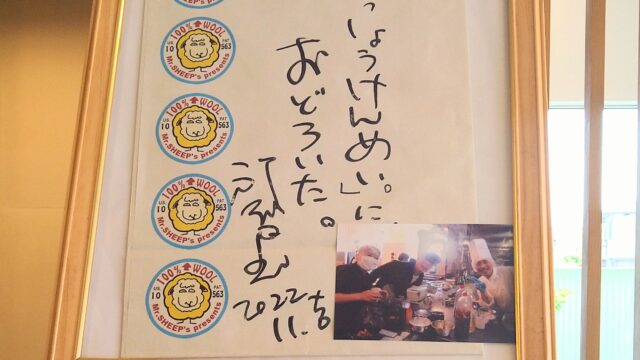 っしょうけんめい」に、
おどろいた。
2022
11.吉
100% WOOL
US 10 PAT 563
Mr.SHEEP's presents
100% WOOL
US 10 PAT 563
Mr.SHEEP's presents
100% WOOL
US 10 PAT 563
Mr.SHEEP's presents
100% WOOL
US 10 PAT 563
Mr.SHEEP's presents